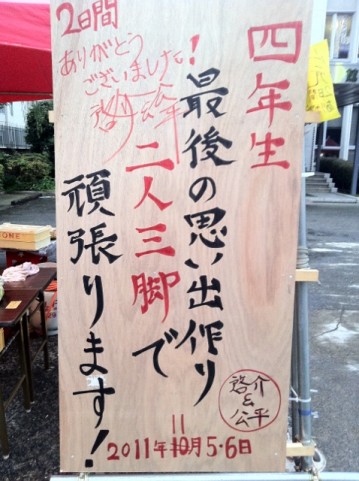 四年生
最後の思い出作り！
二人三脚で
頑張ります！
2日間
ありがとう
ございました！
啓介 公平
啓介
&
公平
11
2011年10月5・6日
ONE